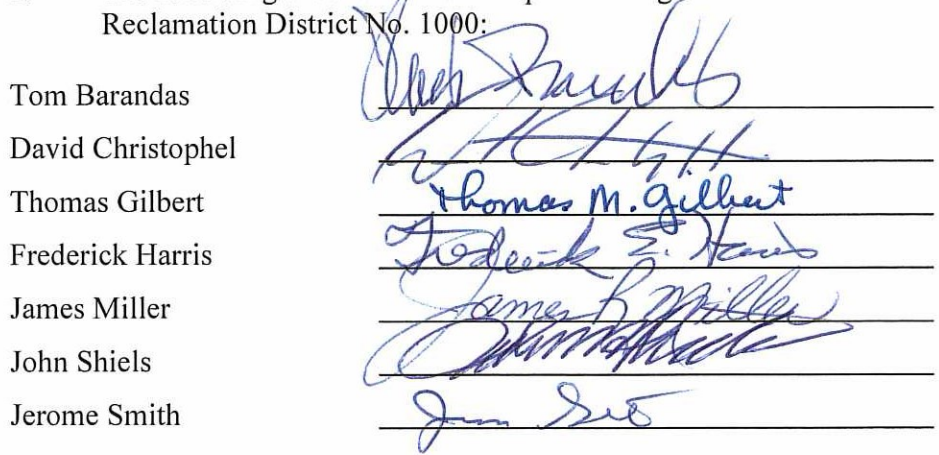 Reclamation District No. 1000:
Tom Barandas
David Christophel
Thomas Gilbert Thomas M. Gilbert
Frederick Harris Frederick E. Harris
James Miller James R Miller
John Shiels
Jerome Smith